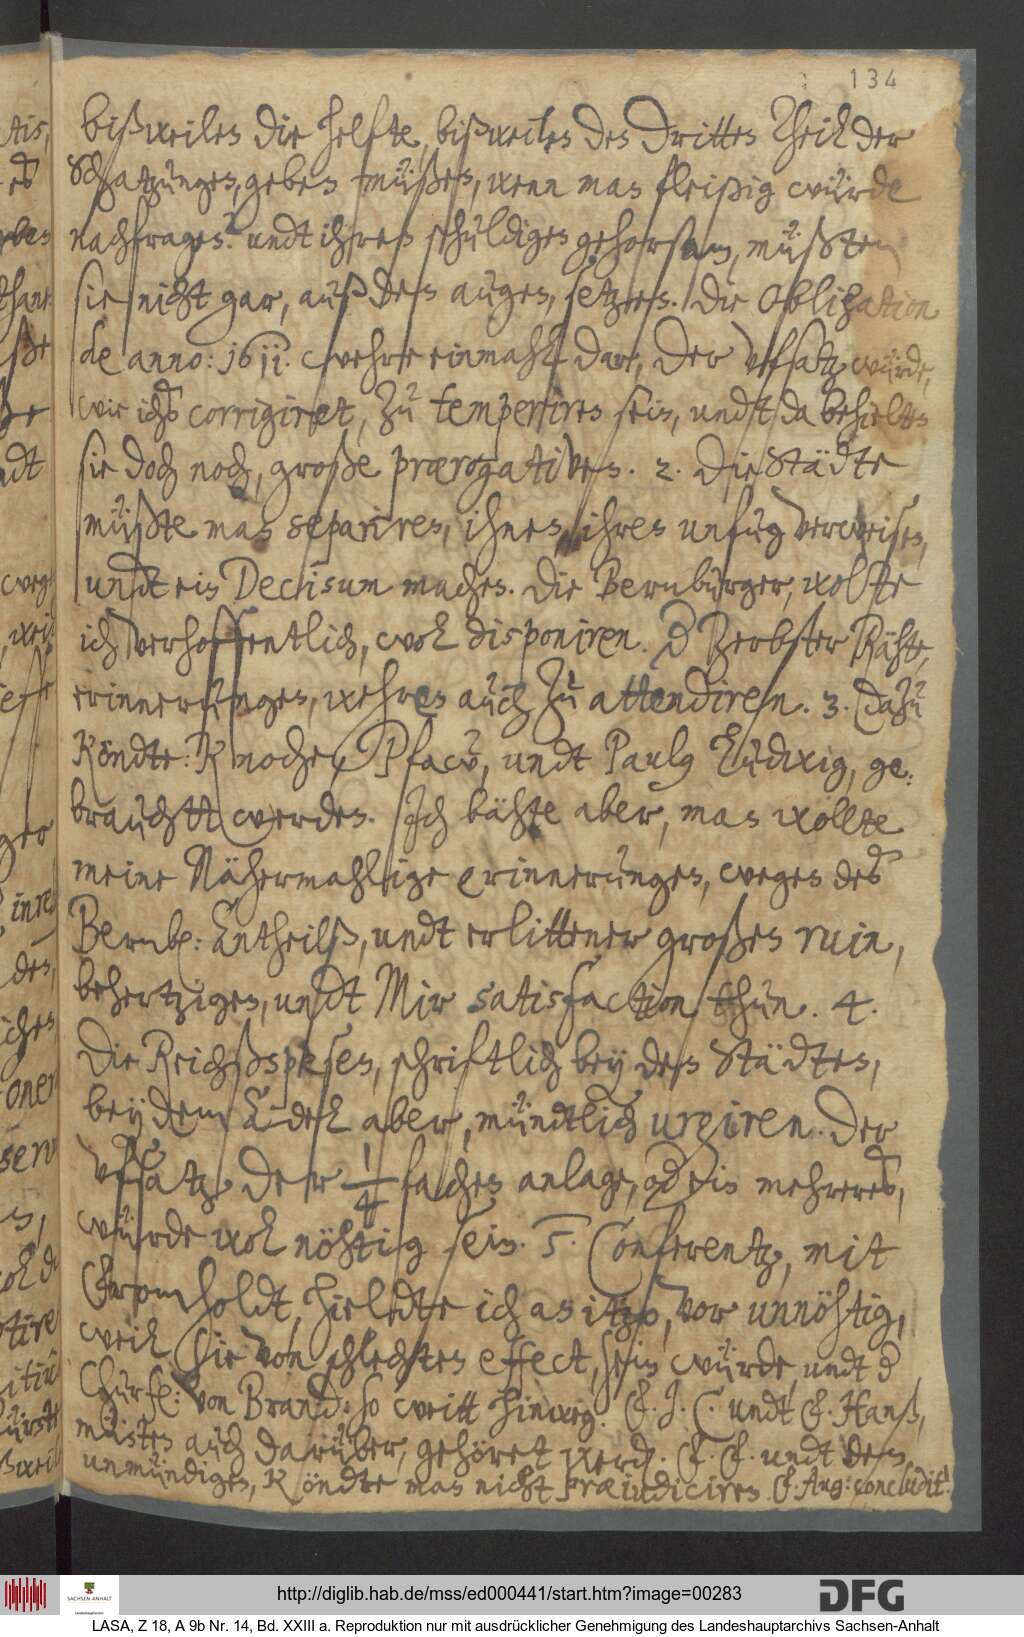 134
bißweilen die helfte, bißweilen den Dritten Theil der
Schatzungen, geben müßen, wenn man fleißig würde
nachfragen. undt ihren schuldigen gehorsam, müßten
sie nicht gar, auß den augen, setzen. Die Obligation
de anno: 1611. wehre einmahl dar, Der Uffsatz würde,
wie ichs corrigiret, zu temperiren sein, undt da behielten
sie doch noch, große prærogativen. 2. Die Städte
müßte man separiren, ihnen, ihren unfug verweisen,
undt ein Decisum machen. Die Bernburger, wolte
ich verhoffentlich, wol disponiren. Der Zerbster Rähte,
erinnerungen, wehren auch zu attendiren. 3. Dazu
Köndte: Knoche, Pfaw, undt Paulg Ludwig, ge-
brauchtt werden. Ich bähte aber, man wollte
meine Nähermahlige erinnerungen, wegen des
Bernb: Antheilß, undt erlittener großen ruin,
behertzigen, undt Mir satisfaction thun. 4.
Die Reichßspesen, schriftlich bey den Städten,
bey dem Adel aber, mündtlich urgiren. Der
Uffsatz der 1/4 fachen anlage, oder ein mehreres,
würde wol nöhtig sein. 5. Conferentz, mit
Eromholdt, hieldte ich an itzo, vor unnöhtig,
weil sie von schlechten effect, sein würde, undt der
Churf: von Brand: so weitt hinweg. E. J. C. undt E. Hanß,
müsten auch darüber, gehöret werden. E. E. undt dem
unmündigen, Köndte man nicht præiudiciren. E. Aug: concludit.
http://diglib.hab.de/mss/ed000441/start.htm?image=00283
DFG
SACHSEN-ANHALT
LASA, Z 18, A 9b Nr. 14, Bd. XXIII a. Reproduktion nur mit ausdrücklicher Genehmigung des Landeshauptarchivs Sachsen-Anhalt